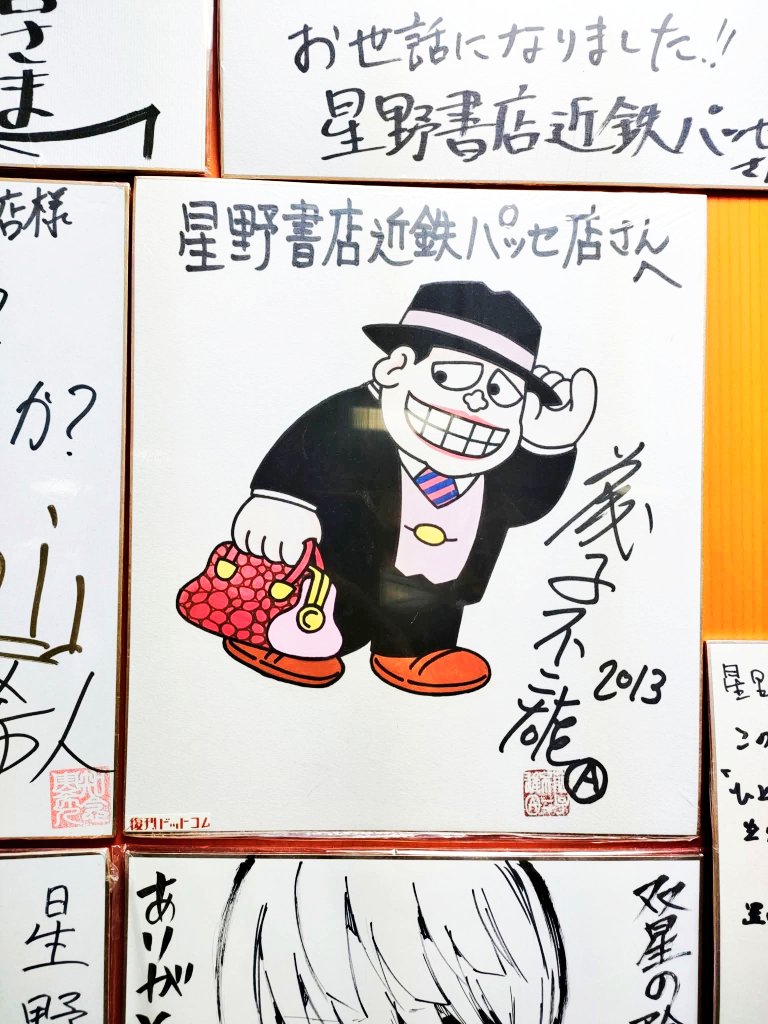 さま
お世話になりました!!
星野書店近鉄パッセ
さん
店様
か?
人
星野書店近鉄パッセ店さんへ
藤子不二雄
Ⓐ
2013
復刊ドットコム
星野
この
星野
ありが
双星の